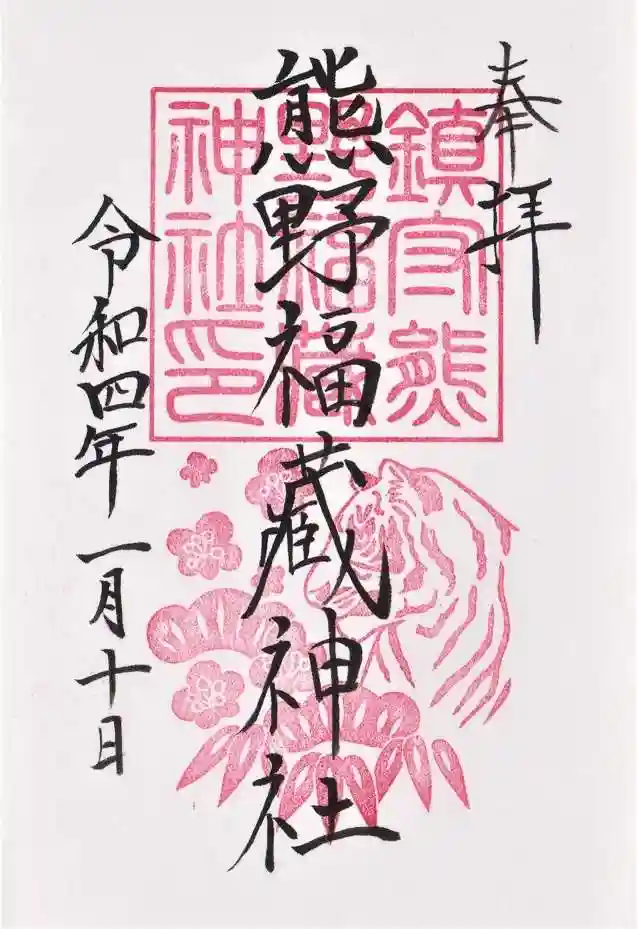 奉拝
熊野福藏神社
令和四年一月十日
鎮守熊
野福藏
神社印